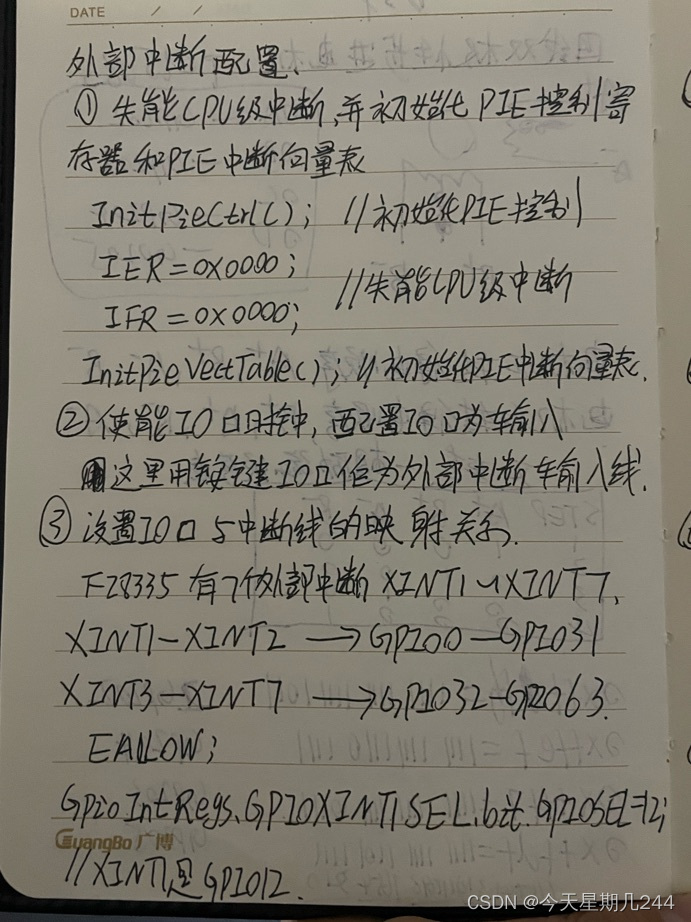 DATE / /
外部中断配置.
① 失能CPU级中断,并初始化PIE控制寄
存器和PIE中断向量表
InitPieCtrl(); //初始化PIE控制
IER=0X0000;
//失能CPU级中断
IFR=0X0000;
InitPieVectTable(); //初始化PIE中断向量表.
② 使能IO口时钟,配置IO口为输入
这里用按键IO口作为外部中断输入线.
③ 设置IO口与中断线的映射关系.
F28335有7个外部中断XINT1~XINT7.
XINT1—XINT2 → GPIO0—GPIO31
XINT3—XINT7 → GPIO32—GPIO63.
EALLOW;
GpioIntRegs.GPIOXINT1SEL.bit.GPIOSEL=12;
GuangBo 广博
//XINT1是GPIO12.
CSDN @今天星期几244